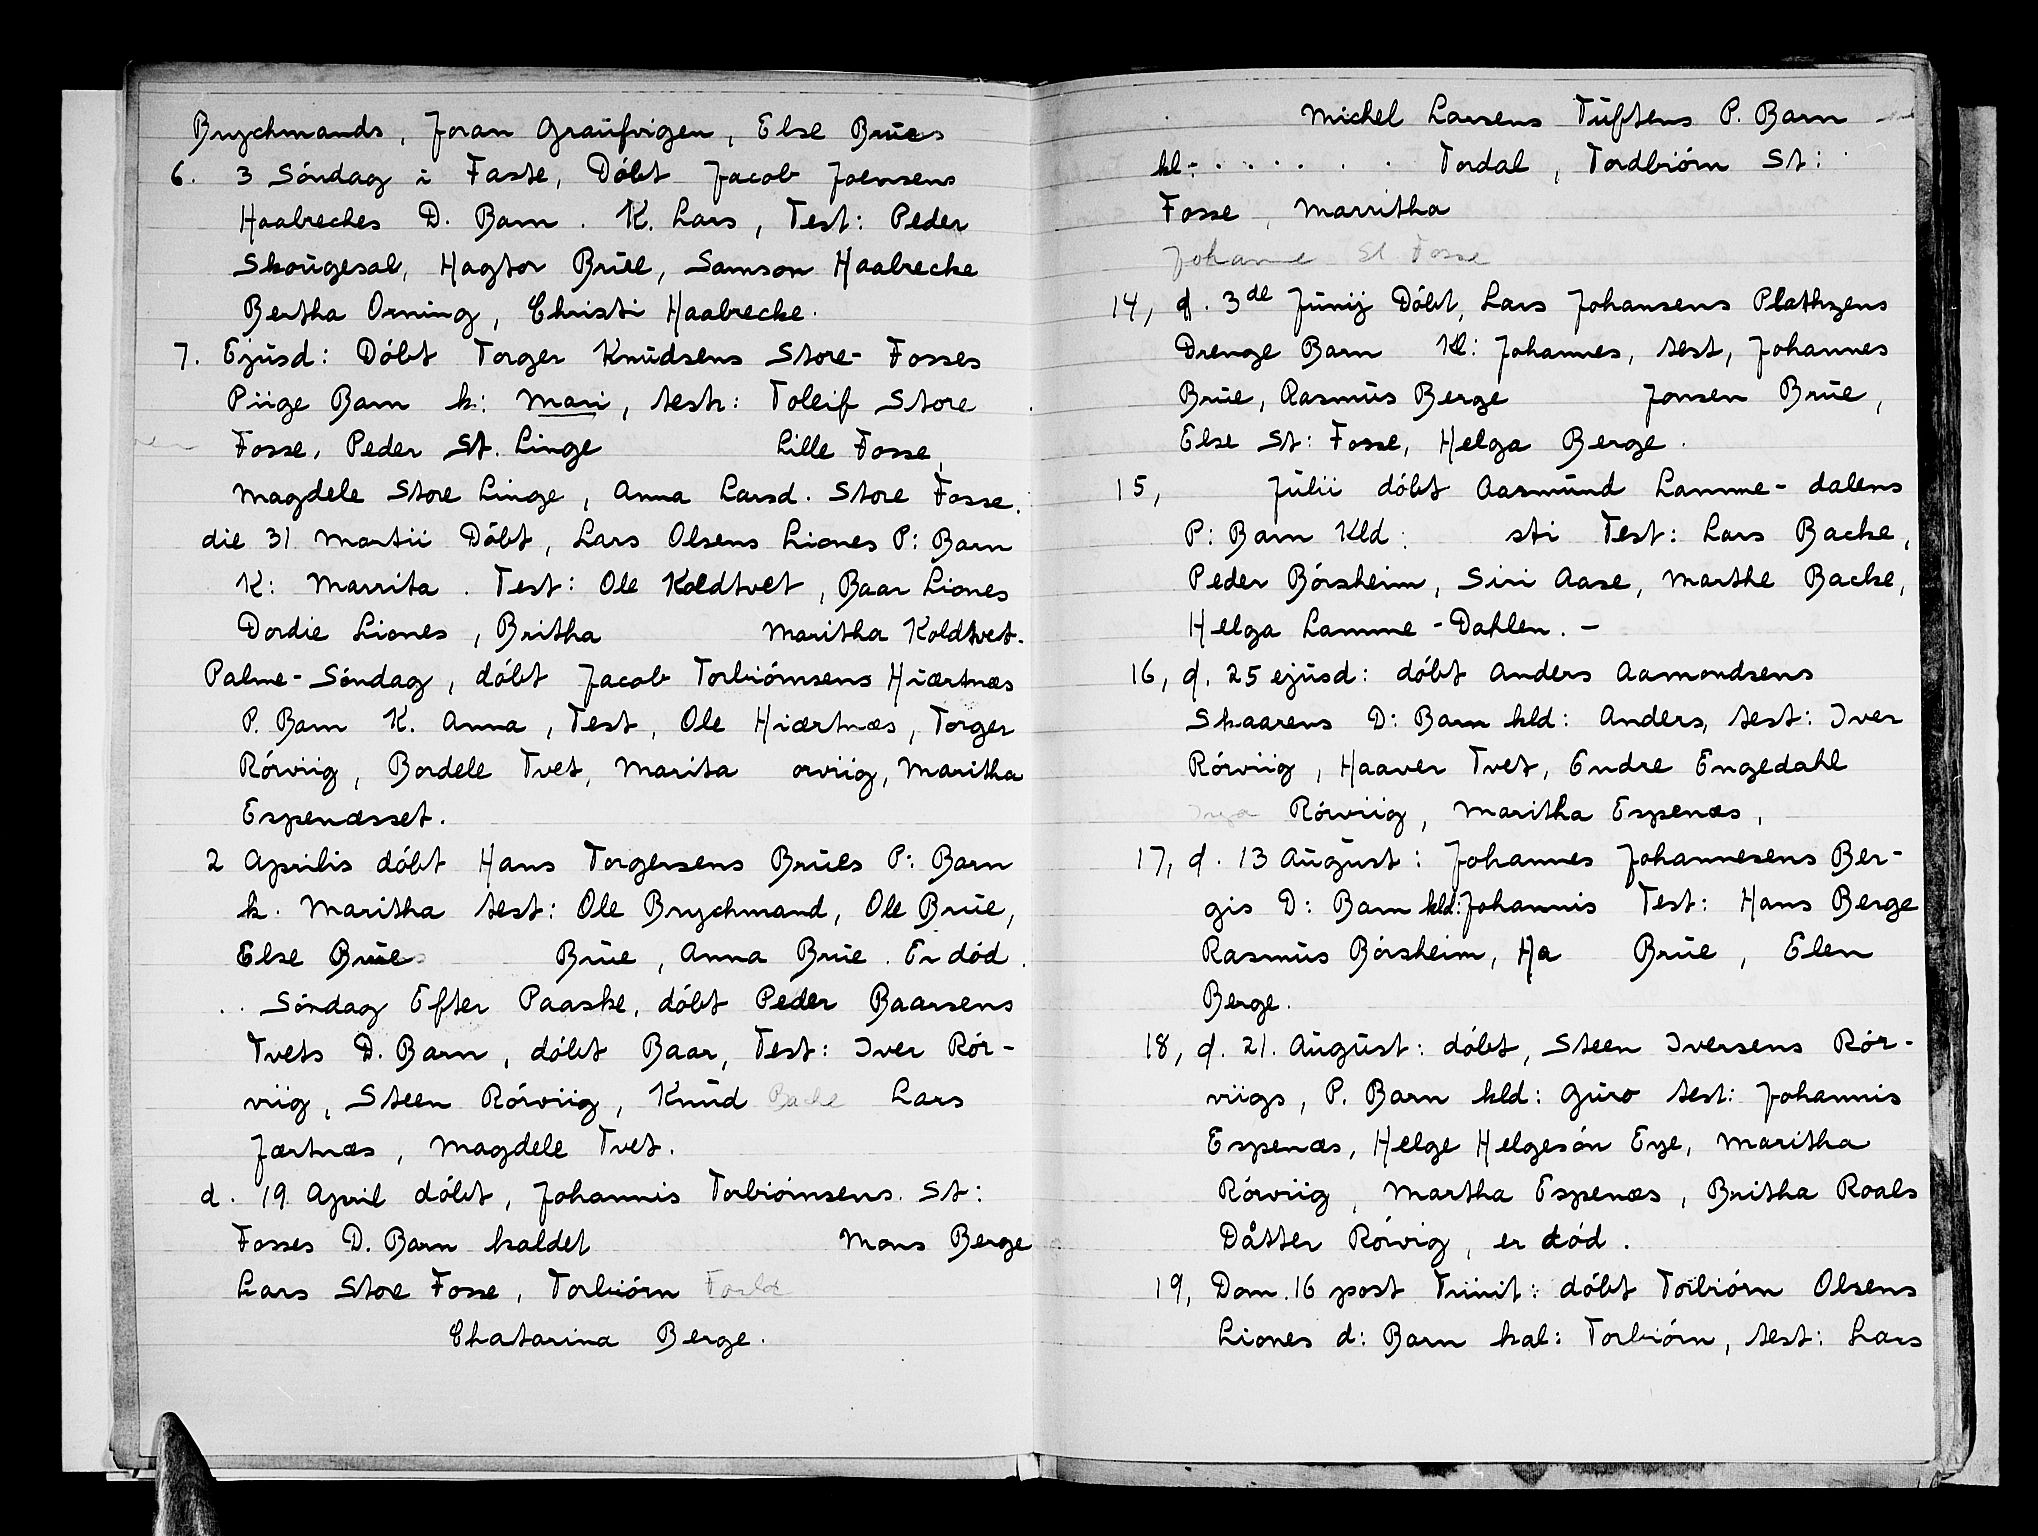 Brychmands, Joran Graufvigen, Else Brues
6. 3 Söndag i Faste, Döbt Jacob Joensens
Haabreches D. Barn. K. Lars, Test: Peder
Skougesal, Hagtor Brue, Samson Haabrecke
Bertha Orning, Christi Haabrecke.
7. Ejusd: Döbt Torger Knudsens Store- Fosses
Piige Barn k: Mari, test: Toleif Store
Fosse, Peder St. Linge Lille Fosse,
Magdele Store Linge, Anna Larsd. Store Fosse.
die 31 Martii Döbt, Lars Olsens Liones P: Barn
K: Marrita. Test: Ole Koldtvet, Baar Liones
Dordie Liones, Britha Maritha Koldtvet.
Palme-Söndag, döbt Jacob Torbiörnsens Hiærtnæs
P. Barn K. Anna, Test, Ole Hiærtnæs, Torger
Rörviig, Bordele Tvet, Marita orviig, Maritha
Espenæsset.
2 Aprilis döbt Hans Torgersens Brues P: Barn
k. Maritha test: Ole Brychmand, Ole Brue,
Else Brue Brue, Anna Brue. Er död.
.. Söndag Efter Paaske, döbt Peder Baarsens
Tvets D. Barn, döbt Baar, Test: Iver Rör-
viig, Steen Rörviig, Knud Backe Lars
Jærtnæs, Magdele Tvet.
d. 19 April döbt, Johannis Torbiörnsens St:
Fosses D. Barn kaldet Mons Berge
Lars Store Fosse, Torbiörn
Chatarina Berge.
Michel Larsens Tuftens P. Barn
kl: . . . . . Tordal, Tordbiörn St:
Fosse, Marritha
Johanne St. Fosse
14, d. 3de Junij Döbt, Lars Johansens Plathzens
Drenge Barn Kl: Johannes, test, Johannes
Brue, Rasmus Berge Jonsen Brue,
Else St: Fosse, Helga Berge.
15, Julii döbt Aasmund Lamme-dalens
P: Barn Kld: sti Test: Lars Backe,
Peder Börsheim, Siri Aase, Marthe Backe,
Helga Lamme-Dahlen. -
16, d. 25 ejusd: döbt Anders Aamondsens
Skaarens D: Barn kld: Anders, test: Iver
Rörviig, Haaver Tvet, Endre Engedahl
Inga Rörviig, Maritha Espenæs,
17, d. 13 August: Johannes Johannesens Ber-
gis D: Barn kld: Johannis Test: Hans Berge
Rasmus Börsheim, Ha Brue, Elen
Berge.
18, d. 21. August: döbt, Steen Iversens Rör-
viigs, P. Barn kld: Guro test: Johannis
Espenæs, Helge Helgesön Eye, Maritha
Rörviig, Martha Espenæs, Britha Roals
Dåtter Rörvig, er död.
19, Dom. 16 post Trinit: döbt Torbiörn Olsens
Liones d: Barn kal: Torbiörn, test: Lars